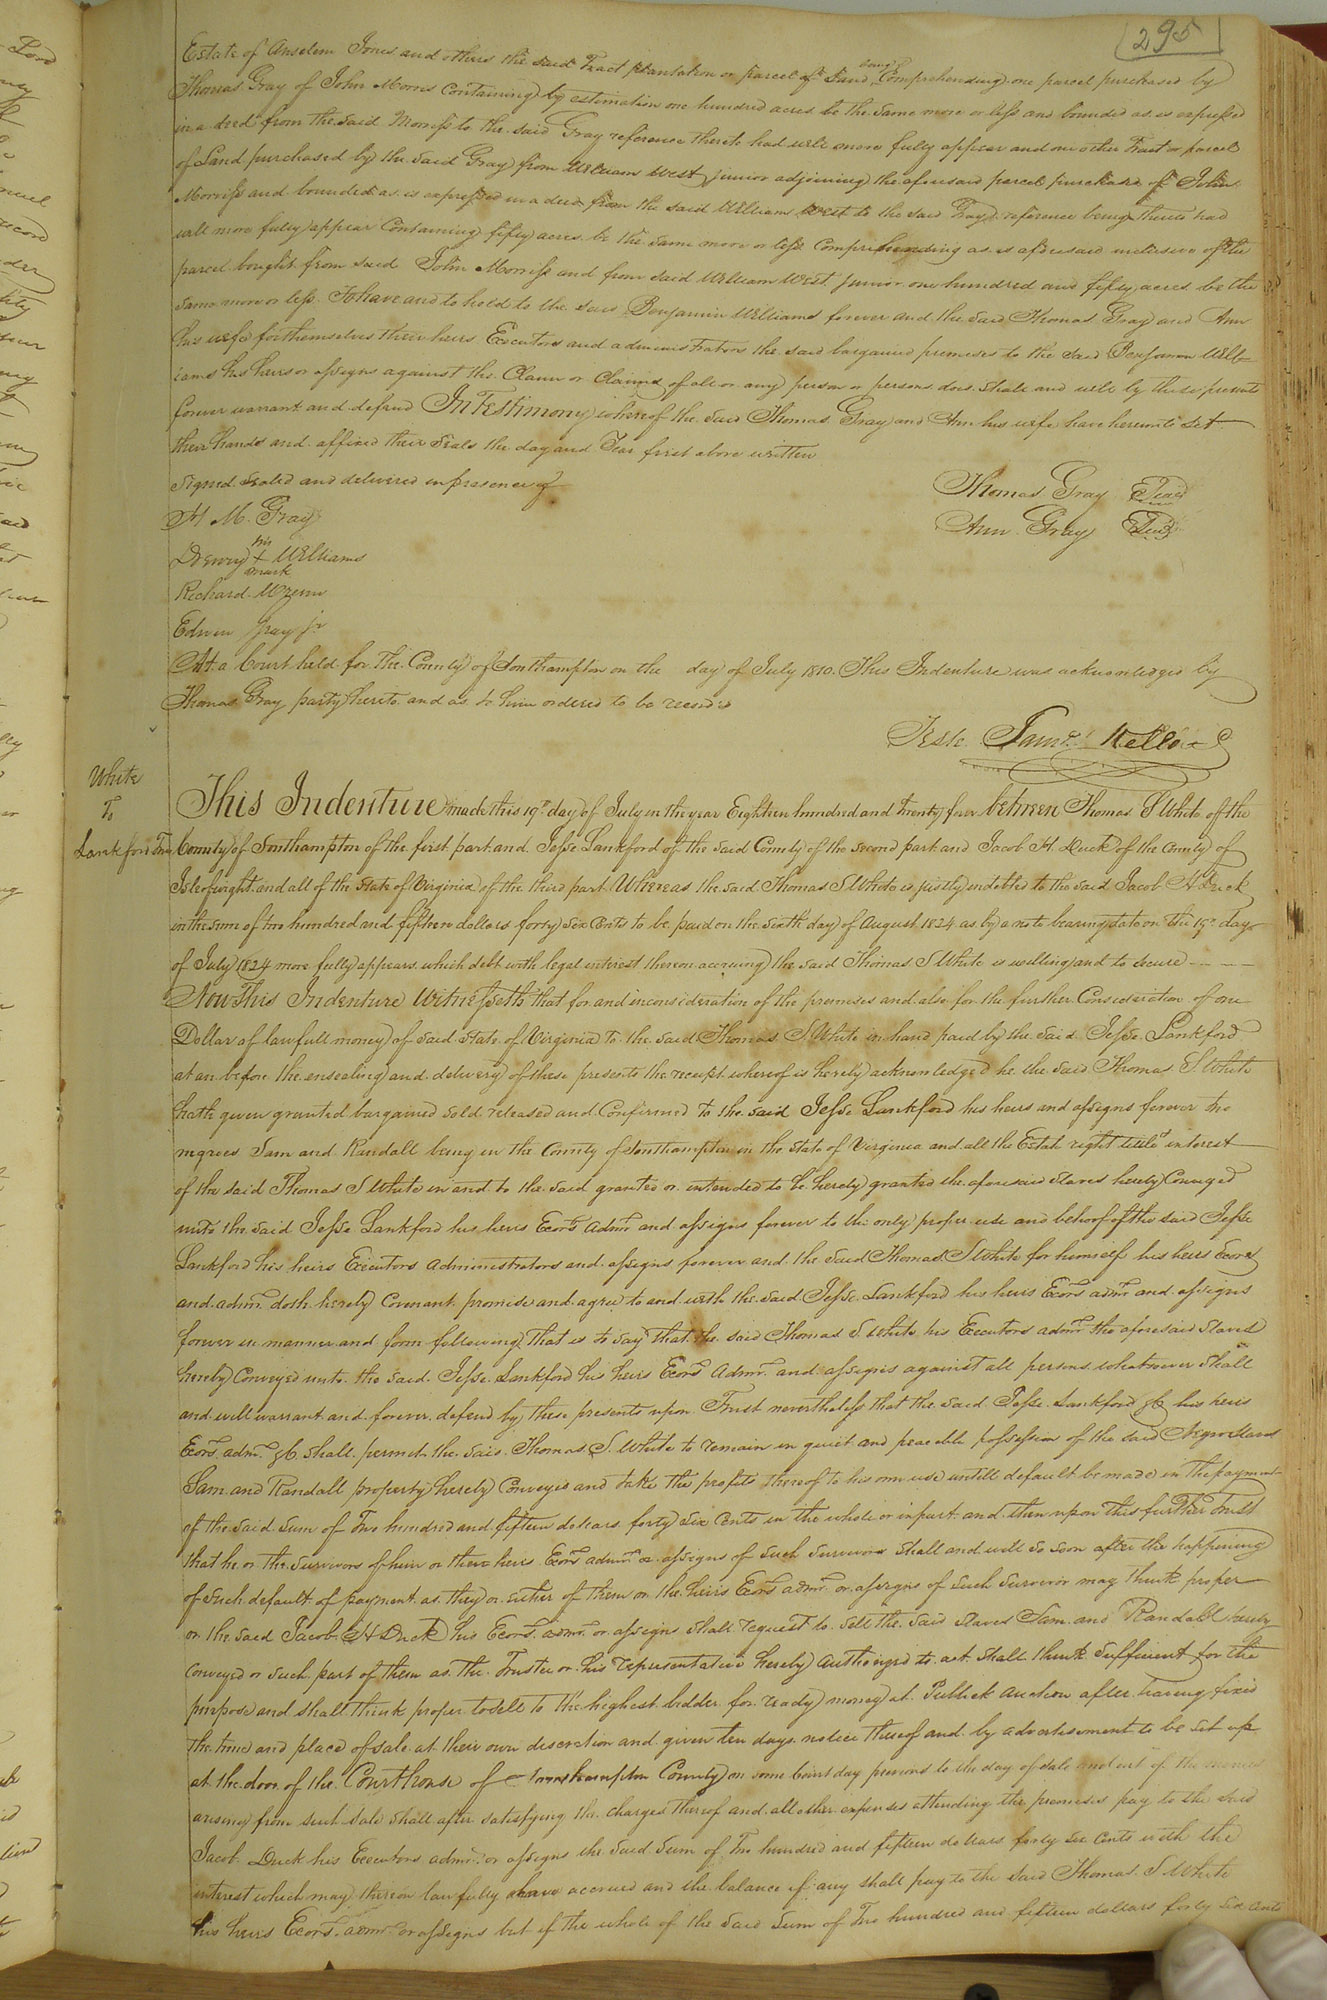 295
Estate of Anselem Jones and others the said Tract plantation or parcel of Land being Comprehending one parcel purchased by
Thomas Gray of John Morris Containing by estimation one hundred acres be the same more or less and bounded as is expressed
in a deed from the said Morriss to the said Gray reference thereto had will more fully appear and one other Tract or parcel
of Land purchased by the said Gray from William West junior adjoining the aforesaid parcel purchased of John
Morriss and bounded as is expressed in a deed from the said William West to the said Gray reference being thereto had
will more fully appear Containing fifty acres be the same more or less Comprehending as is aforesaid inclusive of the
parcel bought from said John Morriss and from said William West junior one hundred and fifty acres be the
same more or less. To have and to hold to the said Benjamin Williams forever and the said Thomas Gray and Ann
his wife for themselves their heirs Executors and administrators the said bargained premises to the said Benjamin Will-
iams his heirs or assigns against the Claim or Claims of all or any person or persons does shall and will by these presents
forever warrant and defend In Testimony whereof the said Thomas Gray and Ann his wife have hereunto set
their hands and affixed their seals the day and Year first above written
Signed Sealed and delivered in presence of
Thomas Gray Seal
H M. Gray
Ann Gray Seal
Drewry his + mark Williams
Richard Wrenn
Edwin Gray jr
At a Court held for the County of Southampton on the day of July 1810. This Indenture was acknowledged by
Thomas Gray party hereto and as to him ordered to be record
Teste Saml. Kello
White
To
Lankford Tru
This Indenture made this 19th day of July in the year Eighteen hundred and twenty four between Thomas S White of the
County of Southampton of the first part and Jesse Lankford of the said County of the second part and Jacob H. Duck of the County of
Isle of wight and all of the State of Virginia of the third part Whereas the said Thomas S White is justly indebted to the said Jacob H Duck
in the sum of two hundred and fifteen dollars forty six Cents to be paid on the sixth day of August 1824 as by a note bearing date on the 19th day
of July 1824 more fully appears which debt with legal interest thereon accruing the said Thomas S White is willing and to secure
Now This Indenture Witnesseth that for and in consideration of the premises and also for the further Consideration of one
Dollar of lawfull money of said State of Virginia to the said Thomas S. White in hand paid by the said Jesse Lankford
at an before the ensealing and delivery of these presents the receipt whereof is hereby acknowledged he the said Thomas S. White
hath given granted bargained sold released and Confirmed to the said Jesse Lankford his heirs and assigns forever two
negroes Sam and Randall being in the County of Southampton in the State of Virginia and all the Estate right title & interest
of the said Thomas S White in and to the said granted or intended to be hereby granted the aforesaid slaves hereby Conveyed
unto the said Jesse Lankford his heirs Exors admr and assigns forever to the only proper use and behoof of the said Jesse
Lankford his heirs Executors administrators and assigns forever and the said Thomas S White for himself his heirs Exors
and admr doth hereby Covenant promise and agree to and with the said Jesse Lankford his heirs Exors admr and assigns
forever in manner and form following that is to say that the said Thomas S. White his Executors admr the aforesaid slaves
hereby Conveyed unto the said Jesse Lankford his heirs Exors Admr and assigns against all persons whatsoever shall
and will warrant and forever defend by these presents upon Trust nevertheless that the said Jesse Lankford &c his heirs
Exors admr &c shall permit the said Thomas S. White to remain in quiet and peacable possession of the said Negro slaves
Sam and Randall property hereby Conveyed and take the profits thereof to his own use untill default be made in the payment
of the said sum of Two hundred and fifteen dollars forty six Cents in the whole or in part and then upon this further Trust
that he or the survivors of him or their heirs Exors admr or assigns of such survivor shall and will so soon after the happening
of such default of payment as they or either of them or the heirs Exors admr or assigns of such survivor may think proper
or the said Jacob H Duck his Exors admr or assigns shall request to sell the said slaves Sam and Randall hereby
conveyed or such part of them as the Trustee or his representative hereby authorized to act shall think sufficient for the
purpose and shall think proper to sell to the highest bidder for ready money at Publick auction after having fixed
the time and place of sale at their own discretion and given ten days notice thereof and by advertisement to be set up
at the door of the Courthouse of Southampton County on some Court day previous to the day of sale and out of the monies
arising from such sale shall after satisfying the charges thereof and all other expenses attending the premises pay to the said
Jacob Duck his Executors admr or assigns the said sum of Two hundred and fifteen dollars forty six cents with the
interest which may thereon lawfully have accrued and the balance if any shall pay to the said Thomas S White
his heirs Exors admr or assigns but if the whole of the said sum of Two hundred and fifteen dollars forty six cents